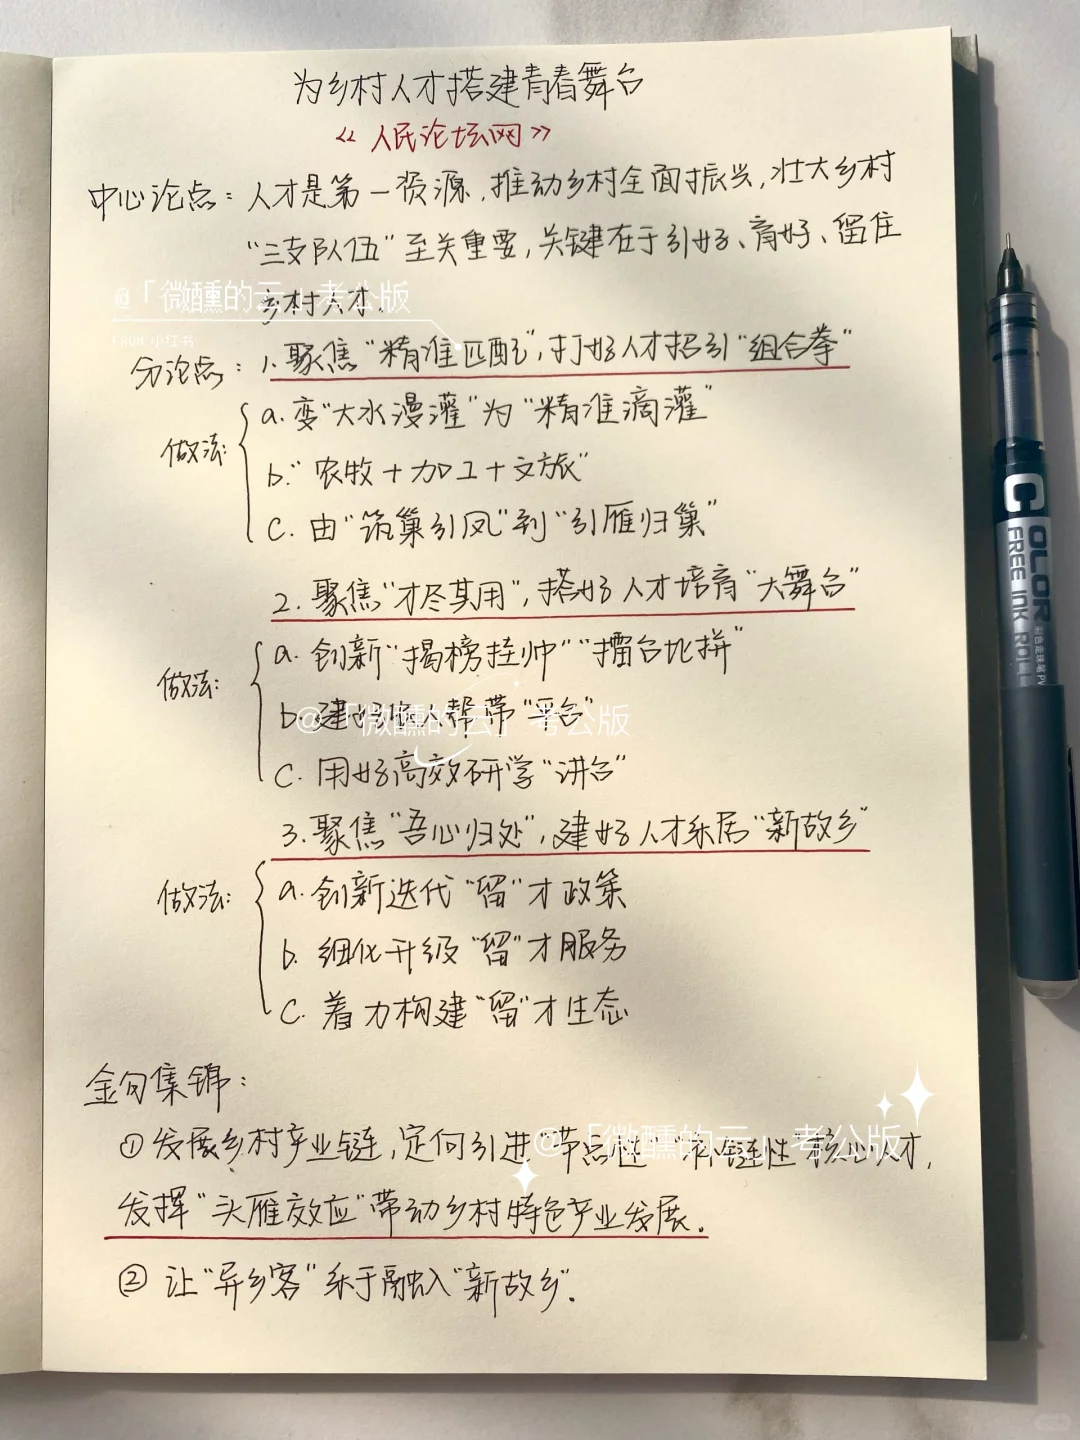 为乡村人才搭建青春舞台
《人民论坛网》
中心论点：人才是第一资源，推动乡村全面振兴，壮大乡村
“三支队伍”至关重要，关键在于引好、育好、留住
乡村人才。
@「微醺的云」考公版
FROM 小红书
分论点：1.聚焦“精准匹配”，打好人才招引“组合拳”
做法：
a.变“大水漫灌”为“精准滴灌”
b.“农牧+加工+文旅”
c.由“筑巢引凤”到“引雁归巢”
2.聚焦“才尽其用”，搭好人才培育“大舞台”
做法：
a.创新“揭榜挂帅”“擂台比拼”
b.建 人帮带“平台”
@「微醺的云」考公版
c.用好高效研学“讲台”
3.聚焦“吾心归处”，建好人才乐居“新故乡”
做法：
a.创新迭代“留”才政策
b.细化升级“留”才服务
c.着力构建“留”才生态
金句集锦：
①发展乡村产业链，定向引进“节点性”链性”核心人才，
@「微醺的云」考公版
发挥“头雁效应”带动乡村特色产业发展。
②让“异乡客”乐于融入“新故乡”.
COLOR
FREE INK ROLL